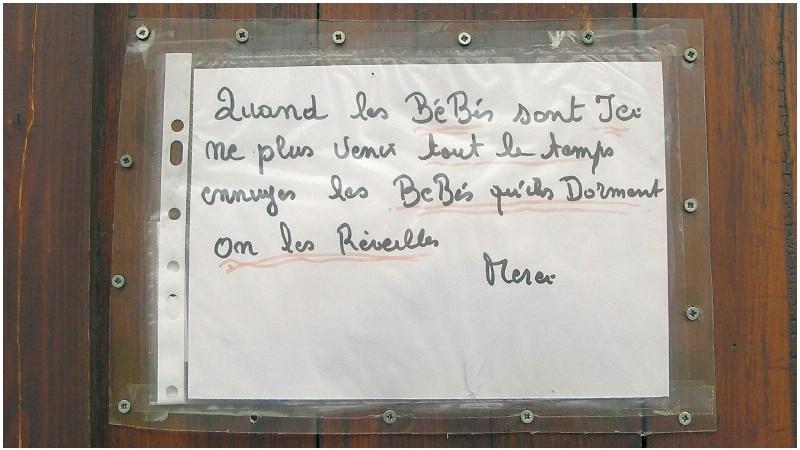 Quand les BéBés sont Ici
ne plus venir tout le temps
ennuyes les BéBés qu'ils Dorment
on les Réveilles
Merci